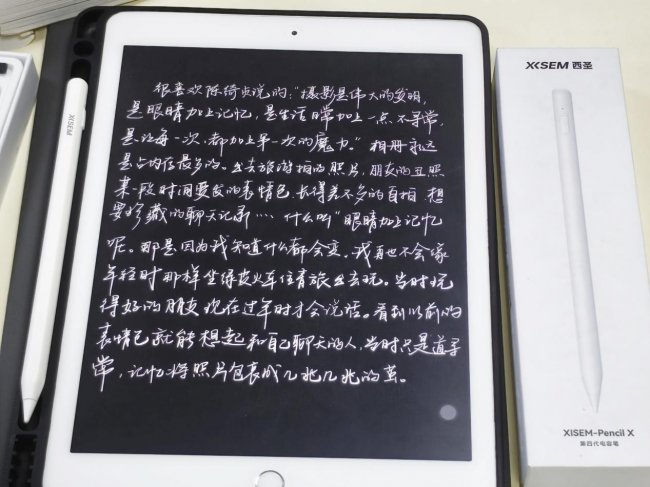 很喜欢陈绮贞说的,"摄影是伟大的发明,
是眼睛加上记忆,是生活日常加上一点不寻常,
是让每一次,都加上第一次的魔力。" 相册永远
是占内存最多的。出去旅游拍的照片,朋友的丑照
某一段时间要发的表情包,长得差不多的自拍 想
要珍藏的聊天记录…… 什么叫"眼睛加上记忆
呢。那是因为我知道什么都会变。我再也不会像
年轻时那样坐绿皮火车住青旅出去玩。当时玩
得好的朋友现在过年时才会说话。看到以前的
表情包就能想起和自己聊天的人,当时只是道寻
常,记忆将照片包裹成几兆几兆的茧。
XISEM
XISEM 西圣
XISEM-Pencil X
第四代电容笔